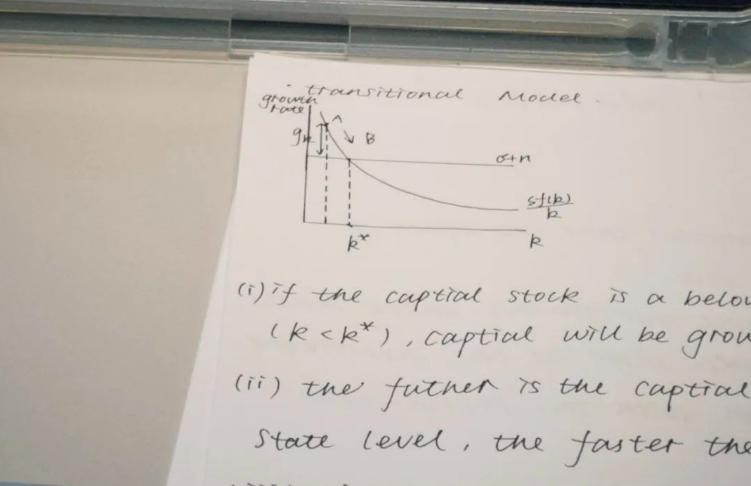 transitional Model.
growth
rate
gk
A
B
σ+n
sf(k)
k
k*
k
(i) if the captial stock is a below
(k<k*), captial will be grow
(ii) the futher is the captial
State level, the faster the